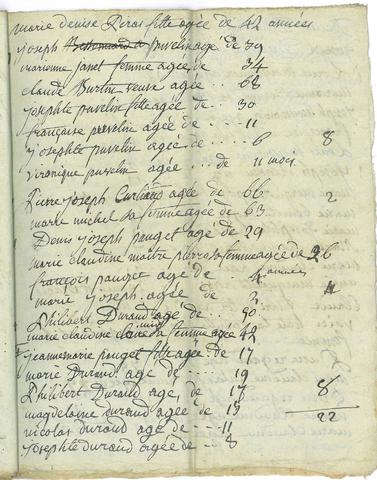 marie denise Peras fille agée de 42 années
joseph puvelin agé de 39
marienne janet femme agée de 34
claude veuve agée de 68
josephte puvelin fille agée de 30
françoise puvelin agée de 11
josephte puvelin agée de 6 8
veronique puvelin agée de 11 mois
Pierre joseph agée de 66 2
marie michel sa femme agée de 63
Denis joseph pauget agé de 29
marie claudine maitre pierre sa femme agée de 26
françois pauget agé de 4 années
marie joseph agée de 2 4
Philibert Durand agé de 50
marie claudine sa femme agée 42
jeanne marie pauget fille agée de 17
marie Durand agé de 19
Philibert Durand agé de 17 8
magdelaine durand agée de 13 22
nicolas durand agé de 11
josephte durand agée de 8